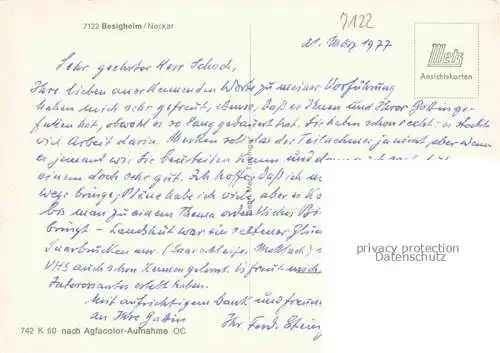 7122 Besigheim/Neckar
7122
21. März 1977
Metz
Ansichtskarten
Sehr geehrter Herr Schoch,
Ihre lieben anerkennenden Worte zu meiner Vorführung
haben mich sehr gefreut, ebenso, daß es Ihnen und Ihrer Gattin ge-
fallen hat, obwohl es so lang gedauert hat. Sie haben schon recht: es steckt
viel Arbeit darin. Merken soll das der Teilnehmer ja nicht aber wenn
es jemand wie Sie beurteilen kann und
einem doch sehr gut. Ich hoffe, daß ich
wege bringe, Pläne habe ich viele, aber es
bis man zu einem Thema ordentliches
bringt - Landshut war ein seltener
Saarbrücken nur (Saarschleife, Mettlach)
VHS auch schon kennen gelernt. Es freut mich
Interessantes erlebt haben.
Mit aufrichtigem Dank und
an Ihre Gattin
Ihr Ferd.
742 K 60 nach Agfacolor-Aufnahme OC
privacy protection
Datenschutz